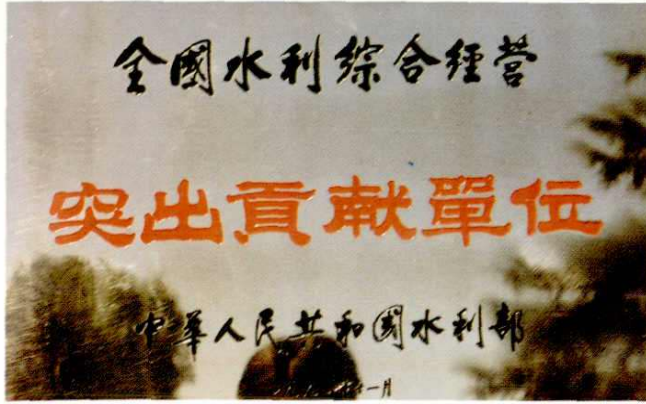 全國水利綜合經营
突出貢献單位
中華人民共和國水利部
十一月